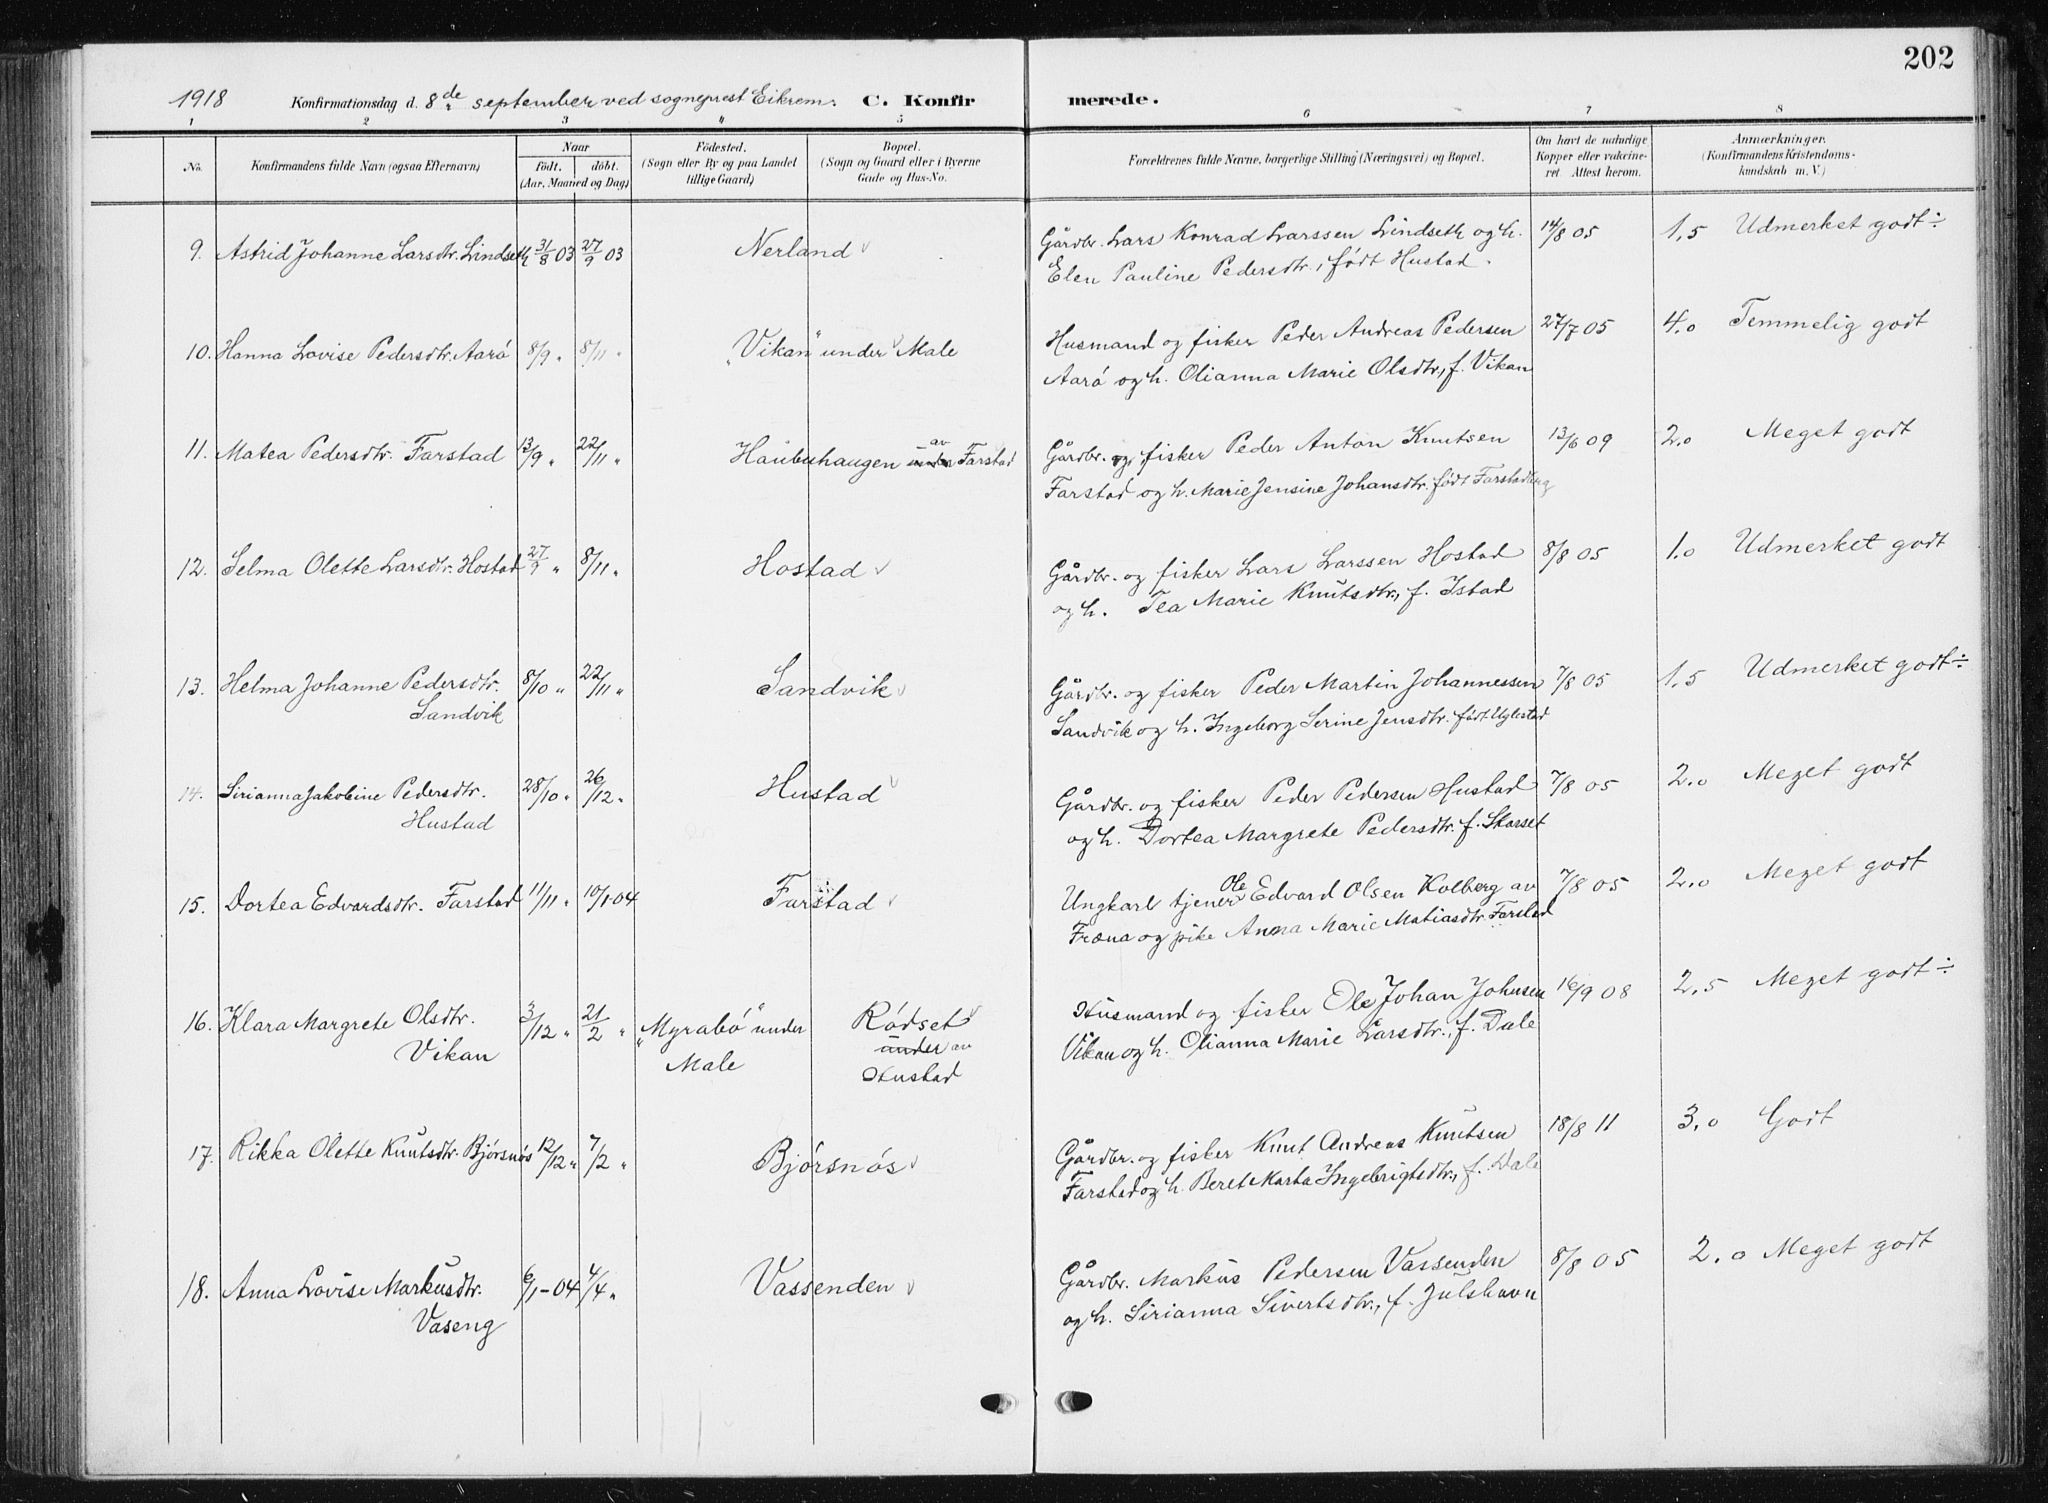 202
1918 Konfirmationsdag d. 8de september ved sogneprest Eikrem. C. Konfirmerede.
1 2 3 4 5 6 7 8
No. Konfirmandens fulde Navn (ogsaa Efternavn) Naar födt. döbt. (Aar, Maaned og Dag) Födested. (Sogn eller By og paa Landet tillige Gaard) Bopæl. (Sogn og Gaard eller i Byerne Gade og Hus-No. Forældrenes fulde Navne, borgerlige Stilling (Næringsvei) og Bopæl. Om havt de naturlige Kopper eller vakcineret. Attest herom. Anmærkninger. (Konfirmandens Kristendomskundskab m. V.)
9. Astrid Johanne Larsdtr. Lindseth 31/8 03 27/9 03 Nerland Gårdbr. Lars Konrad Larssen Lindseth og h. 14/8 05 1,5 Udmerket godt÷
Elen Pauline Pedersdtr., født Hustad.
10. Hanna Lovise Pedersdtr. Aarö 8/9 " 8/11 " "Vikan" under Male Husmand og fisker Peder Andreas Pedersen 27/7 05 4.0 Temmelig godt
Aarö og h. Olianna Marie Olsdtr., f. Vikan
11. Matea Pedersdtr. Farstad 13/9 " 22/11 " Haubuhaugen under av Farstad Gårdbr. og fisker Peder Anton Knutsen 13/6 09 2.0 Meget godt
Farstad og h. Marie Jensine Johansdtr. født Farstadeng
12. Selma Olette Larsdtr. Hostad 27/9 " 8/11 " Hostad Gårdbr. og fisker Lars Larssen Hostad 8/8 05 1.0 Udmerket godt
og h. Tea Marie Knutsdtr., f. Istad
13. Helma Johanne Pedersdtr. 8/10 " 22/11 " Sandvik Gårdbr. og fisker Peder Martin Johannessen 7/8 05 1.5 Udmerket godt÷
Sandvik Sandvik og h. Ingeborg Serine Jensdtr. født Uglestad
14. Sirianna Jakobine Pedersdtr. 28/10 " 26/12 " Hustad Gårdbr. og fisker Peder Pedersen Hustad 7/8 05 2.0 Meget godt
Hustad og h. Dortea Margrete Pedersdtr. f. Skarset
15. Dortea Edvardsdtr. Farstad 11/11 " 10/1-04 Farstad Ungkarl tjener Ole Edvard Olsen Kolberg av 7/8 05 2.0 Meget godt
Fræna og pike Anna Marie Matiasdtr. Farstad
16. Klara Margrete Olsdtr. 3/12 " 21/2 " "Myrabö" under Rödset Husmand og fisker Ole Johan Johnsen 16/9 08 2.5 Meget godt÷
Vikan Male under av Hustad Vikan og h. Olianna Marie Larsdtr., f. Dale
17. Rikka Olette Knutsdtr. Bjørsnøs 12/12 " 7/2 " Bjórsnós Gårdbr. og fisker Knut Andreas Knutsen 18/8 11 3.0 Godt
Farstad og h. Beret Marta Ingebrigtsdtr., f. Dale
18. Anna Lovise Markusdtr. 6/1-04 4/4 " Vassenden Gårdbr. Markus Pedersen Vassenden 8/8 05 2.0 Meget godt
Vaseng og h. Sirianna Sivertsdtr., f. Julshavn